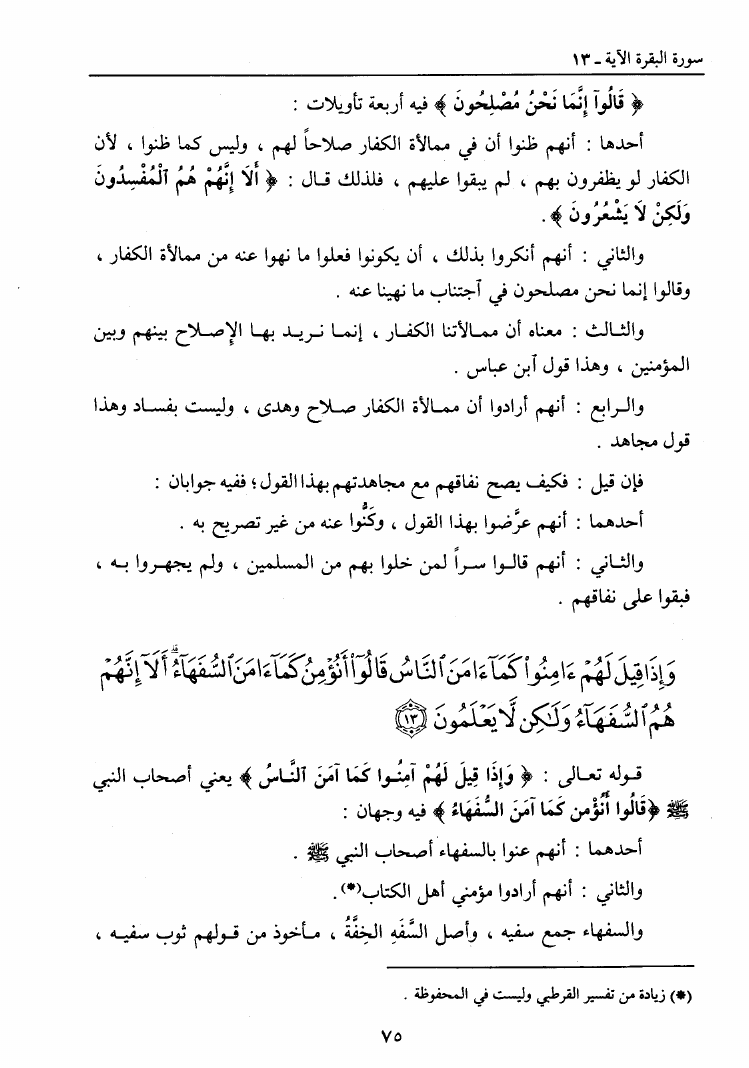 سورة البقرة الآية ـ ١٣
﴿ قَالُوٓا إِنَّمَا نَحْنُ مُصْلِحُونَ ﴾ فيه أربعة تأويلات :
أحدها : أنهم ظنوا أن في ممالأة الكفار صلاحاً لهم ، وليس كما ظنوا ، لأن
الكفار لو يظفرون بهم ، لم يبقوا عليهم ، فلذلك قال : ﴿ أَلَا إِنَّهُمْ هُمُ ٱلْمُفْسِدُونَ
وَلَكِنْ لَا يَشْعُرُونَ ﴾.
والثاني : أنهم أنكروا بذلك ، أن يكونوا فعلوا ما نهوا عنه من ممالأة الكفار ،
وقالوا إنما نحن مصلحون في ٱجتناب ما نهينا عنه .
والثالث : معناه أن ممالأتنا الكفار ، إنما نريد بها الإصلاح بينهم وبين
المؤمنين ، وهذا قول ٱبن عباس .
والرابع : أنهم أرادوا أن ممالأة الكفار صلاح وهدى ، وليست بفساد وهذا
قول مجاهد .
فإن قيل : فكيف يصح نفاقهم مع مجاهدتهم بهذا القول؛ ففيه جوابان :
أحدهما : أنهم عرَّضوا بهذا القول ، وكَنُّوا عنه من غير تصريح به .
والثاني : أنهم قالوا سراً لمن خلوا بهم من المسلمين ، ولم يجهروا به ،
فبقوا على نفاقهم .
وَإِذَا قِيلَ لَهُمْ ءَامِنُوا۟ كَمَآ ءَامَنَ ٱلنَّاسُ قَالُوٓا۟ أَنُؤْمِنُ كَمَآ ءَامَنَ ٱلسُّفَهَآءُ ۗ أَلَآ إِنَّهُمْ
هُمُ ٱلسُّفَهَآءُ وَلَٰكِن لَّا يَعْلَمُونَ ١٣
قوله تعالى : ﴿ وَإِذَا قِيلَ لَهُمْ آمِنُوا كَمَا آمَنَ ٱلنَّاسُ ﴾ يعني أصحاب النبي
ﷺ ﴿قَالُوا أَنُؤْمن كَمَا آمَنَ السُّفَهَاءُ ﴾ فيه وجهان :
أحدهما : أنهم عنوا بالسفهاء أصحاب النبي ﷺ .
والثاني : أنهم أرادوا مؤمني أهل الكتاب(*).
والسفهاء جمع سفيه ، وأصل السَّفَهِ الخِفَّةُ ، مأخوذ من قولهم ثوب سفيه ،
(*) زيادة من تفسير القرطبي وليست في المحفوظة .
٧٥